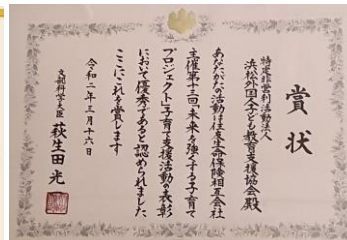 賞状
特定非営利活動法人
浜松外国人子ども教育支援協会殿
あなたがたの活動は住友生命保険相互会社
主催第十三回「未来を強くする子育て
プロジェクト」子育て支援活動の表彰
において優秀であると認められました
ここにこれを賞します
令和二年三月十六日
文部科学大臣 萩生田光一